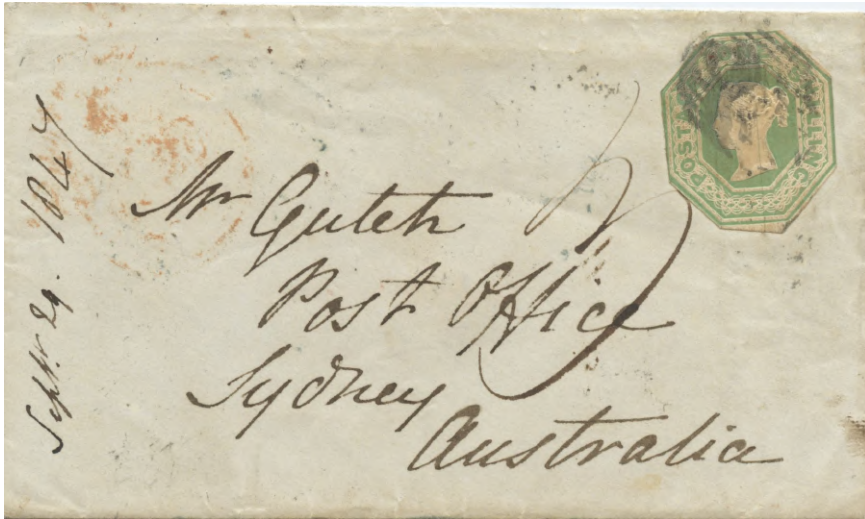 Sept. 29. 1847
Mr Gutch
Post Office
Sydney
Australia
POST
LLING